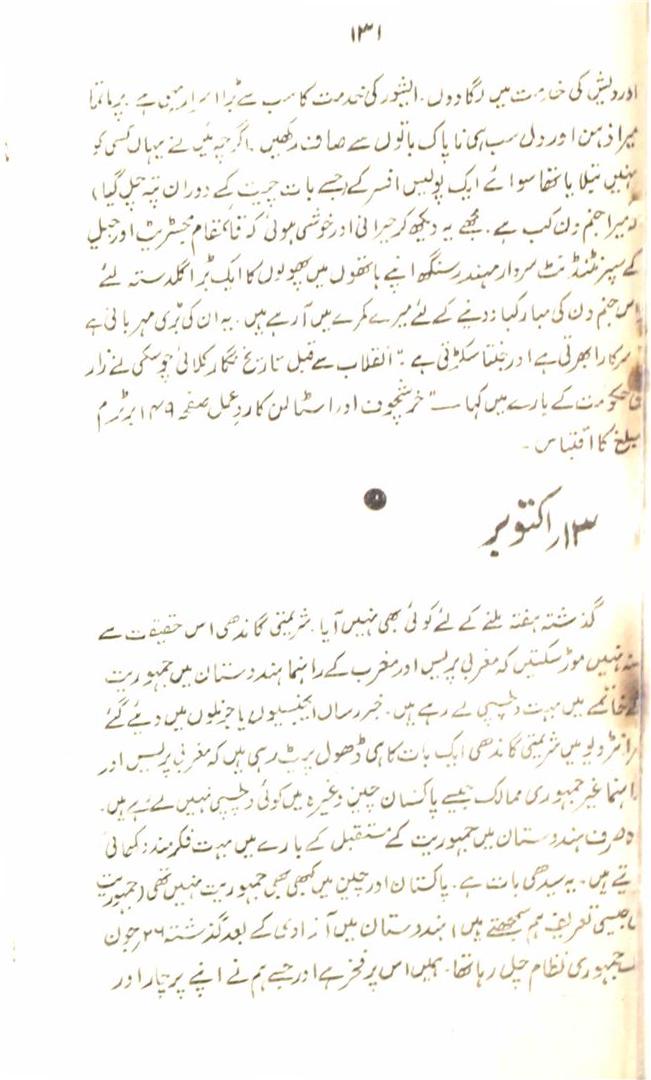 ۱۳۱
اور دیش کی خدمت میں لگا دوں۔ ایشور کی خدمت کا سب سے بڑا اسرار یہی ہے۔ پرماتما
میرا ذہن اور دل سب ہی ناپاک باتوں سے صاف رکھیں۔ اگرچہ میں نے یہاں کسی کو
نہیں بتلایا تھا سوائے ایک پولیس افسر کے (جسے بات چیت کے دوران پتہ چل گیا)
کہ میرا جنم دن کب ہے۔ مجھے یہ دیکھ کر حیرانی اور خوشی ہوئی کہ قائمقام مجسٹریٹ اور جیل
کے سپرنٹنڈنٹ سردار مہندر سنگھ اپنے ہاتھوں میں پھولوں کا ایک بڑا گلدستہ لئے
اس جنم دن کی مبارکباد دینے کے لئے میرے کمرے میں آ رہے ہیں۔ یہ ان کی بڑی مہربانی ہے
سرکار ابھرتی ہے اور جنتا سکڑتی ہے۔" انقلاب سے قبل تاریخ نگار کلائی چوسکی نے زار
کی حکومت کے بارے میں کہا — "خرشچوف اور اسٹالن کا ردعمل صفحہ ۱۴۹ برٹرم
کا اقتباس۔
۱۳ر اکتوبر
گذشتہ ہفتہ ملنے کے لئے کوئی بھی نہیں آیا۔ شریمتی گاندھی اس حقیقت سے
منہ نہیں موڑ سکتیں کہ مغربی پریس اور مغرب کے راہنما ہندوستان میں جمہوریت
کے خاتمے میں بہت دلچسپی لے رہے ہیں۔ خبر رساں ایجنسیوں یا جرنلوں میں دیئے گئے
انٹرویو میں شریمتی گاندھی ایک بات کا ہی ڈھول پیٹ رہی ہیں کہ مغربی پریس اور
راہنما غیر جمہوری ممالک جیسے پاکستان چین وغیرہ میں کوئی دلچسپی نہیں لے رہے ہیں۔
وہ صرف ہندوستان میں جمہوریت کے مستقبل کے بارے میں بہت فکرمند دکھائی
دیتے ہیں۔ یہ سیدھی بات ہے۔ پاکستان اور چین میں کبھی بھی جمہوریت نہیں تھی (جمہوریت
کی جیسی تعریف ہم سمجھتے ہیں) ہندوستان میں آزادی کے بعد گذشتہ ۲۶ر جون
تک جمہوری نظام چل رہا تھا۔ ہمیں اس پر فخر ہے اور جسے ہم نے اپنے پرچار اور